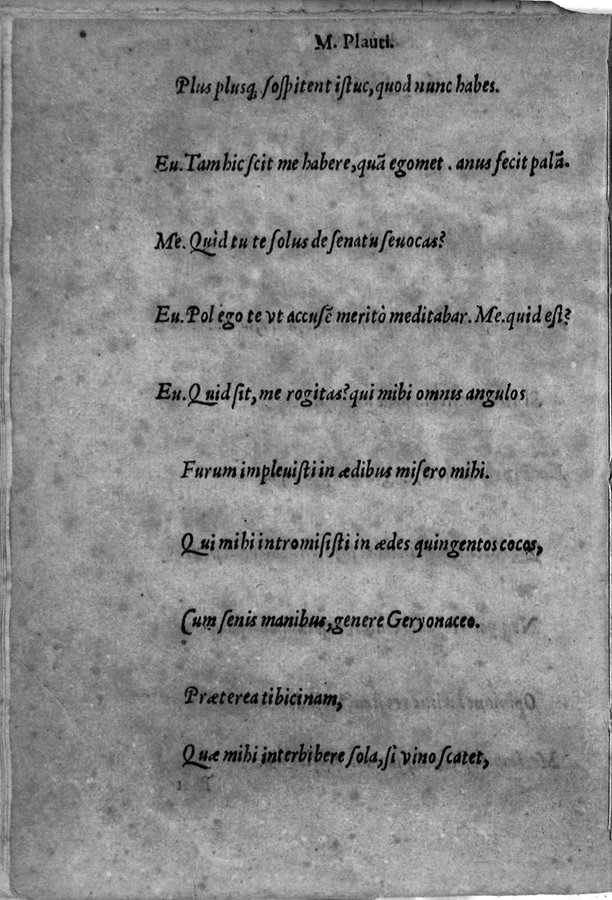 M. Plauti.
Plus plusq; ſoſpitent iſtuc, quod nunc habes.
Eu. Tam hic ſcit me habere, quã egomet. anus fecit palã.
Me. Quid tu te ſolus de ſenatu ſeuocas?
Eu. Pol ego te vt accuſẽ meritò meditabar. Me. quid eſt?
Eu. Quid ſit, me rogitas? qui mihi omnis angulos
Furum impleuiſti in ædibus miſero mihi.
Qui mihi intromiſiſti in ædes quingentos cocos,
Cum ſenis manibus, genere Geryonaceo.
Præterea tibicinam,
Quæ mihi interbibere ſola, ſi vino ſcatet,